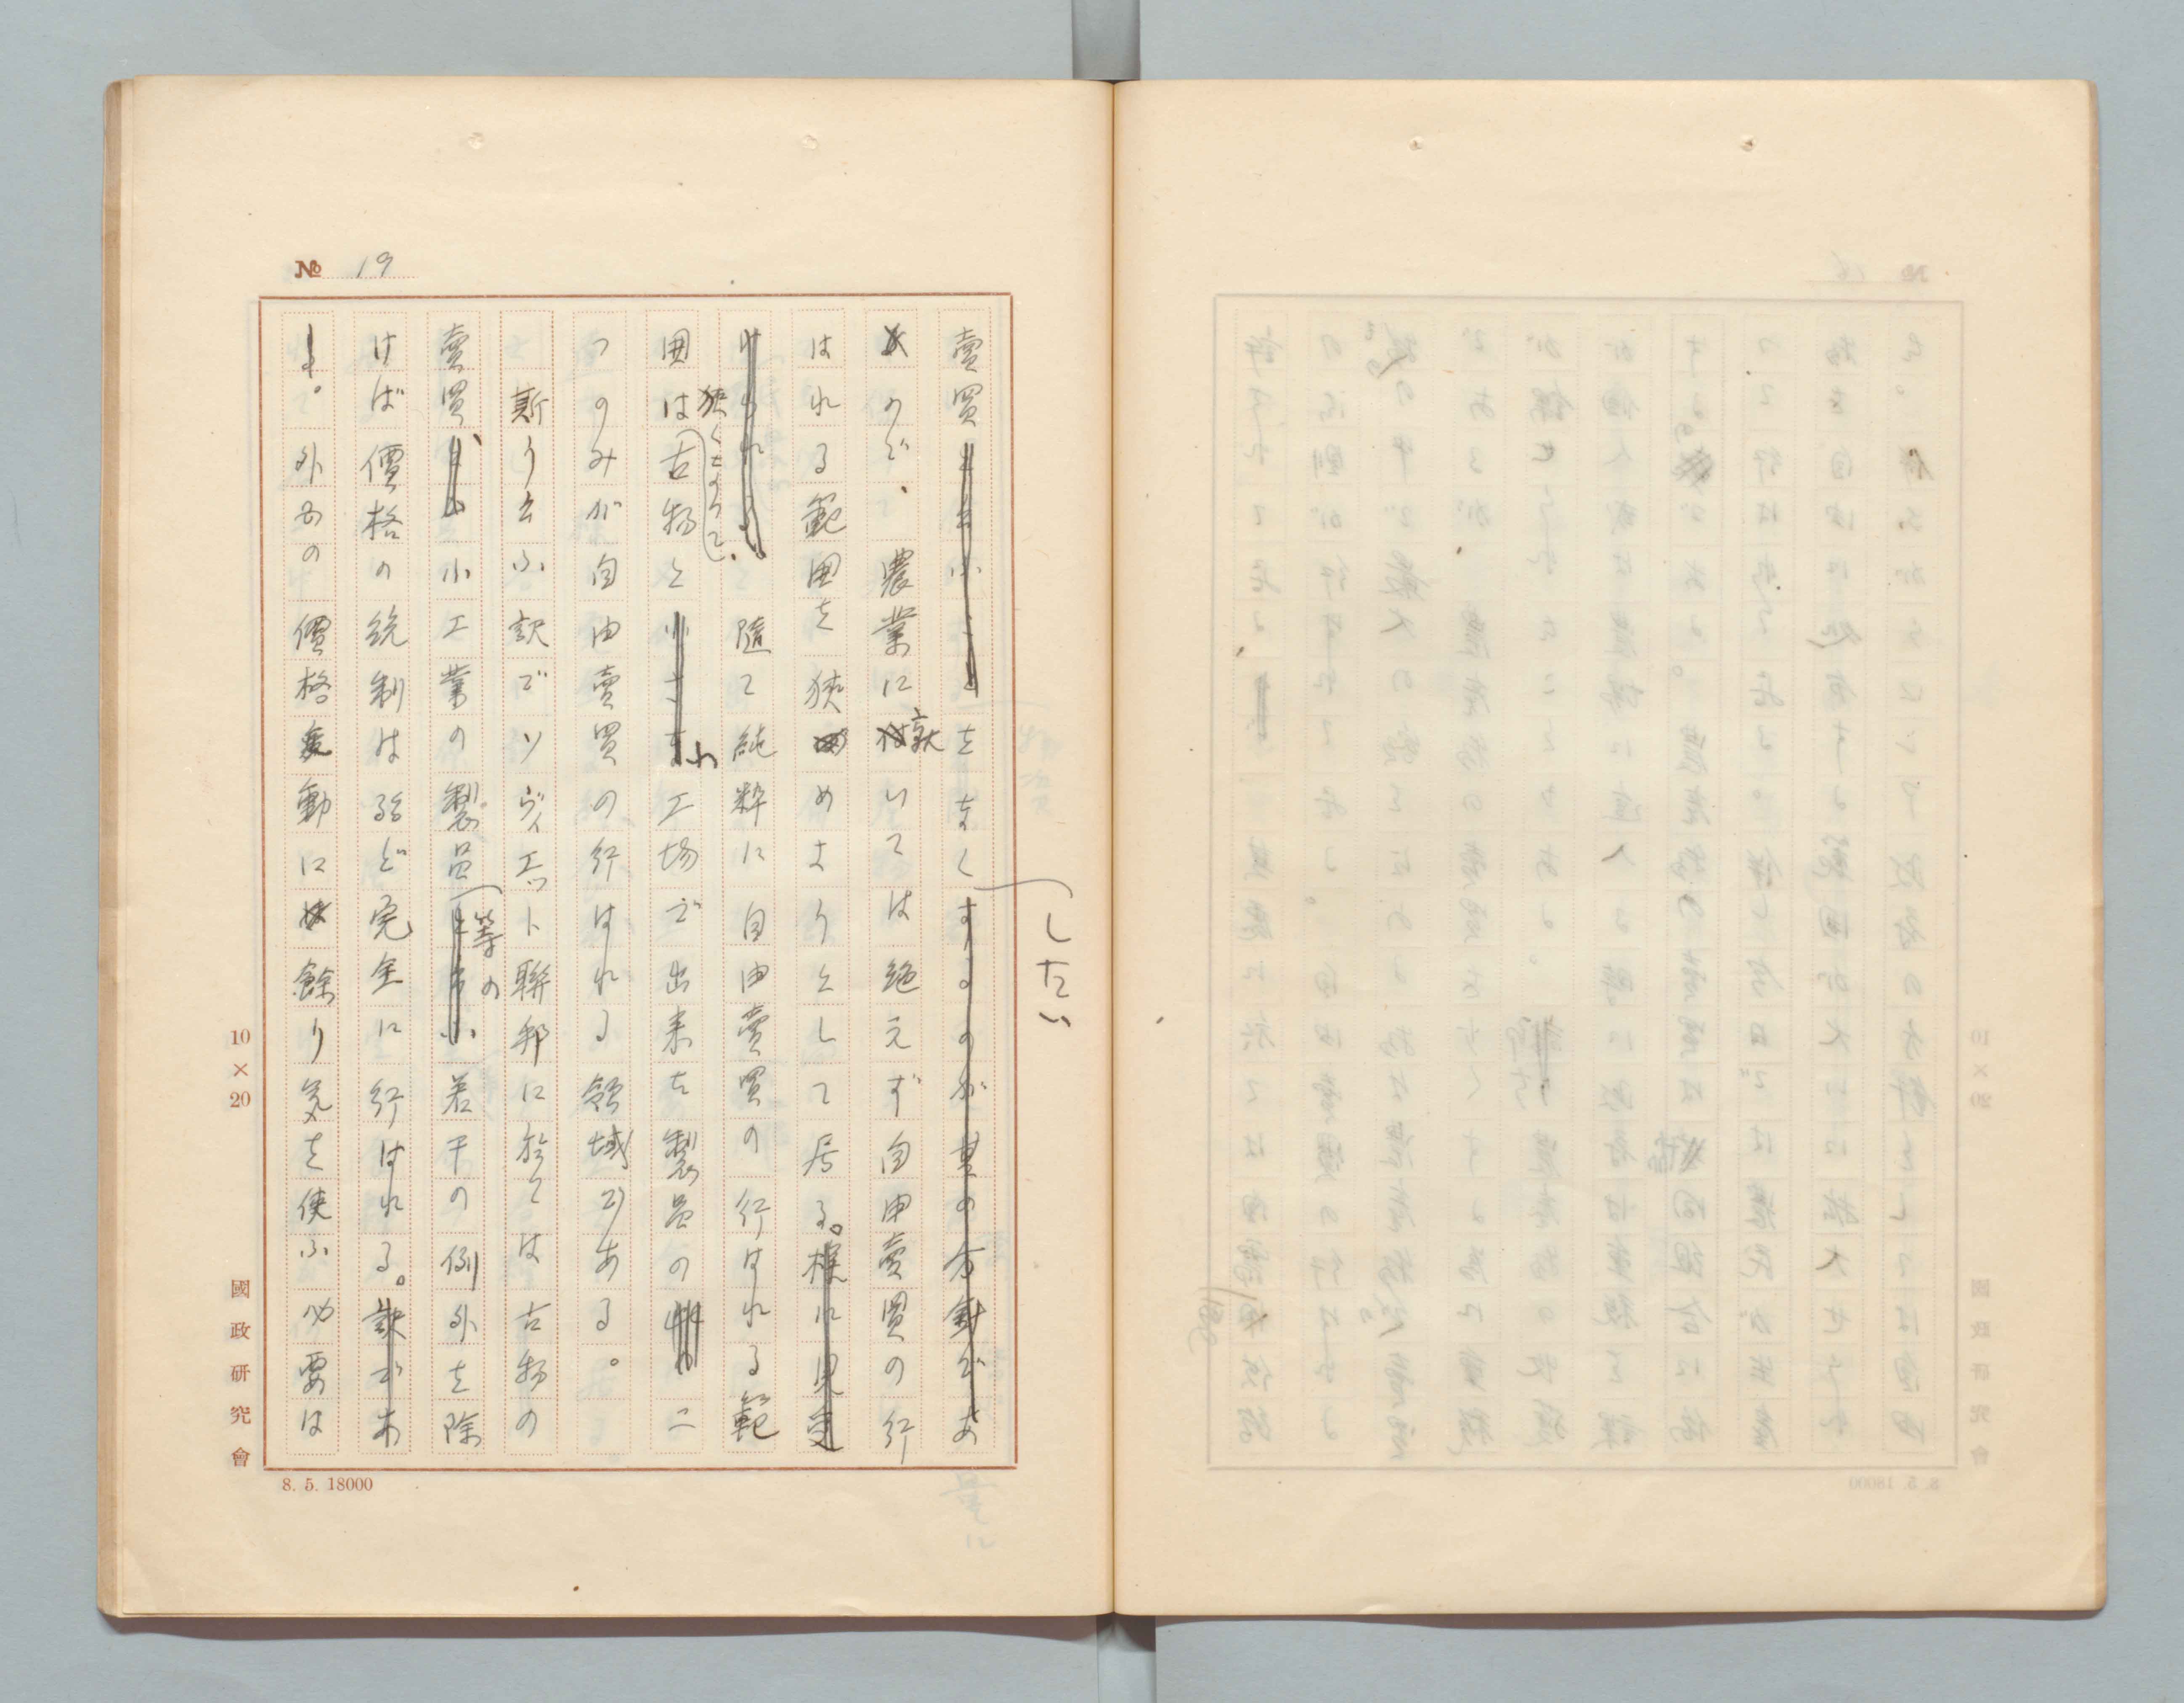 № 19
賣買と云ふことをなくしたいするのが其の方針であ
るので、農業に就いては絶えず自由賣買の行
はれる範囲を狭めようとして居る。様に見受
けられる。隨て純粋に自由賣買の行はれる範
囲は狭くなつて、古物と小さな工場で出来た製品の二
つのみが自由賣買の行はれる領域である。
斯う云ふ訳でソヴィエット聯邦に於ては古物の
賣買、小工業の製品等の若干の例外を除
けば價格の統制は殆ど完全に行はれる。訳であ
る。外の價格変動に餘り気を使ふ必要は
10×20
國政研究會
8. 5. 18000